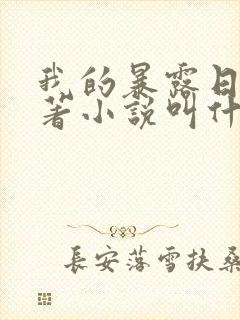 我的暴露日
著小說叫什
長安落雪扶桑